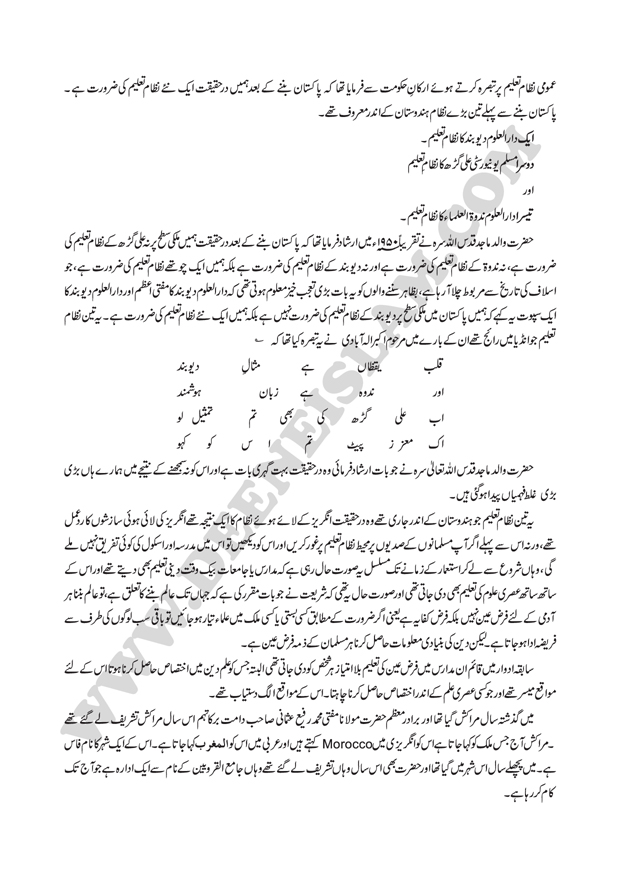 عمومی نظام تعلیم پر تبصرہ کرتے ہوئے ارکان حکومت سے فرمایا تھا کہ پاکستان بننے کے بعد ہمیں درحقیقت ایک نئے نظام تعلیم کی ضرورت ہے ۔
پاکستان بننے سے پہلے تین بڑے نظام ہندوستان کے اندر معروف تھے۔
ایک دارالعلوم دیوبند کا نظام تعلیم ۔
دوسرا مسلم یونیورسٹی علی گڑھ کا نظام تعلیم
اور
تیسرا دارالعلوم ندوۃ العلماء کا نظام تعلیم ۔
حضرت والد ماجد قدس اللہ سرہ نے تقریباً ۱۹۵۰ء میں ارشاد فرمایا تھا کہ پاکستان بننے کے بعد درحقیقت ہمیں ملکی سطح پر نہ علی گڑھ کے نظام تعلیم کی
ضرورت ہے، نہ ندوۃ کے نظام تعلیم کی ضرورت ہے اور نہ دیوبند کے نظام تعلیم کی ضرورت ہے بلکہ ہمیں ایک چوتھے نظام تعلیم کی ضرورت ہے، جو
اسلاف کی تاریخ سے مربوط چلا آ رہا ہے، بظاہر سننے والوں کو یہ بات بڑی تعجب خیز معلوم ہوتی تھی کہ دارالعلوم دیوبند کا مفتی اعظم اور دارالعلوم دیوبند کا
ایک سپوت یہ کہے کہ ہمیں پاکستان میں ملکی سطح پر دیوبند کے نظام تعلیم کی ضرورت نہیں ہے بلکہ ہمیں ایک نئے نظام تعلیم کی ضرورت ہے۔ یہ تین نظام
تعلیم جو انڈیا میں رائج تھے ان کے بارے میں مرحوم اکبر الہ آبادی نے یہ تبصرہ کیا تھا کہ ؎
قلب یقظاں ہے مثالِ دیوبند
اور ندوہ ہے زبان ہوشمند
اب علی گڑھ کی بھی تم تمثیل لو
اک معزز پیٹ تم اس کو کہو
حضرت والد ماجد قدس اللہ تعالیٰ سرہ نے جو بات ارشاد فرمائی وہ درحقیقت بہت گہری بات ہے اور اس کو نہ سمجھنے کے نتیجے میں ہمارے ہاں بڑی
بڑی غلط فہمیاں پیدا ہو گئی ہیں۔
یہ تین نظام تعلیم جو ہندوستان کے اندر جاری تھے وہ درحقیقت انگریز کے لائے ہوئے نظام کا ایک نتیجہ تھے انگریز کی لائی ہوئی سازشوں کا ردعمل
تھے، ورنہ اس سے پہلے اگر آپ مسلمانوں کے صدیوں پر محیط نظام تعلیم پر غور کریں اور اس کو دیکھیں تو اس میں مدرسہ اور اسکول کی کوئی تفریق نہیں ملے
گی، وہاں شروع سے لے کر استعمار کے زمانے تک مسلسل یہ صورت حال رہی ہے کہ مدارس یا جامعات بیک وقت دینی تعلیم بھی دیتے تھے اور اس کے
ساتھ ساتھ عصری علوم کی تعلیم بھی دی جاتی تھی اور صورت حال یہ تھی کہ شریعت نے جو بات مقرر کی ہے کہ جہاں تک عالم بننے کا تعلق ہے، تو عالم بننا ہر
آدمی کے لئے فرض عین نہیں بلکہ فرض کفایہ ہے یعنی اگر ضرورت کے مطابق کسی بستی یا کسی ملک میں علماء تیار ہو جائیں تو باقی سب لوگوں کی طرف سے
فریضہ ادا ہو جاتا ہے۔ لیکن دین کی بنیادی معلومات حاصل کرنا ہر مسلمان کے ذمہ فرض عین ہے۔
سابقہ ادوار میں قائم ان مدارس میں فرض عین کی تعلیم بلا امتیاز ہر شخص کو دی جاتی تھی البتہ جس کو علم دین میں اختصاص حاصل کرنا ہو تا اس کے لئے
مواقع میسر تھے اور جو کسی عصری علم کے اندر اختصاص حاصل کرنا چاہتا۔ اس کے مواقع الگ دستیاب تھے۔
میں گذشتہ سال مراکش گیا تھا اور برادر معظم حضرت مولانا مفتی محمد رفیع عثمانی صاحب دامت برکاتہم اس سال مراکش تشریف لے گئے تھے
۔مراکش آج جس ملک کو کہا جاتا ہے اس کو انگریزی میں Morocco کہتے ہیں اور عربی میں اس کو المغرب کہا جاتا ہے۔ اس کے ایک شہر کا نام فاس
ہے۔ میں پچھلے سال اس شہر میں گیا تھا اور حضرت بھی اس سال وہاں تشریف لے گئے تھے وہاں جامع القرویین کے نام سے ایک ادارہ ہے جو آج تک
کام کر رہا ہے۔
WWW.DEENEISLAM.COM